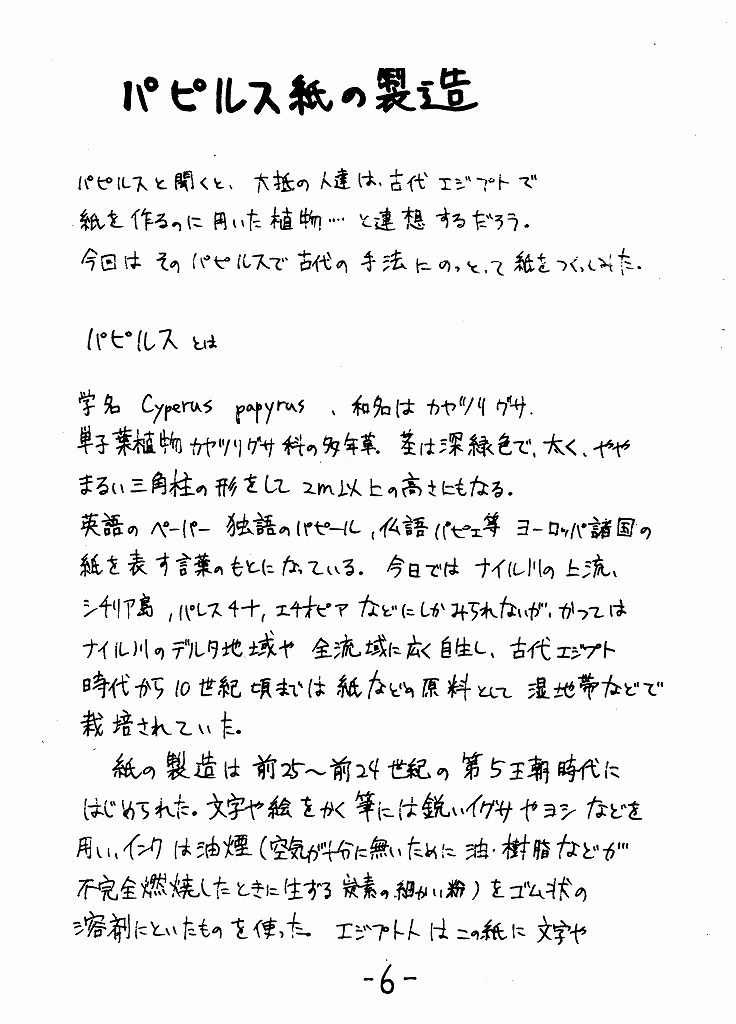 パピルス紙の製造
パピルスと聞くと、大抵の人達は、古代エジプトで
紙を作るのに用いた植物…と連想するだろう。
今回はそのパピルスで古代の手法にのっとって紙をつくってみた。
パピルスとは
学名 Cyperus papyrus 、和名はカヤツリグサ.
単子葉植物カヤツリグサ科の多年草. 茎は深緑色で、太く、やや
まるい三角柱の形をして2m以上の高さにもなる.
英語のペーパー 独語のパピール,仏語パピエ等 ヨーロッパ諸国の
紙を表す言葉のもとになっている. 今日ではナイル川の上流、
シチリア島,パレスチナ,エチオピアなどにしかみられないが、かつては
ナイル川のデルタ地域や全流域に広く自生し、古代エジプト
時代から10世紀頃までは紙などの原料として湿地帯などで
栽培されていた。
紙の製造は前25〜前24世紀の第5王朝時代に
はじめられた。文字や絵をかく筆には鋭いイグサやヨシなどを
用い、インクは油煙(空気が十分に無いために油・樹脂などが
不完全燃焼したときに生ずる炭素の細かい粉)をゴム状の
溶剤にといたものを使った。エジプト人はこの紙に文字や
-6-